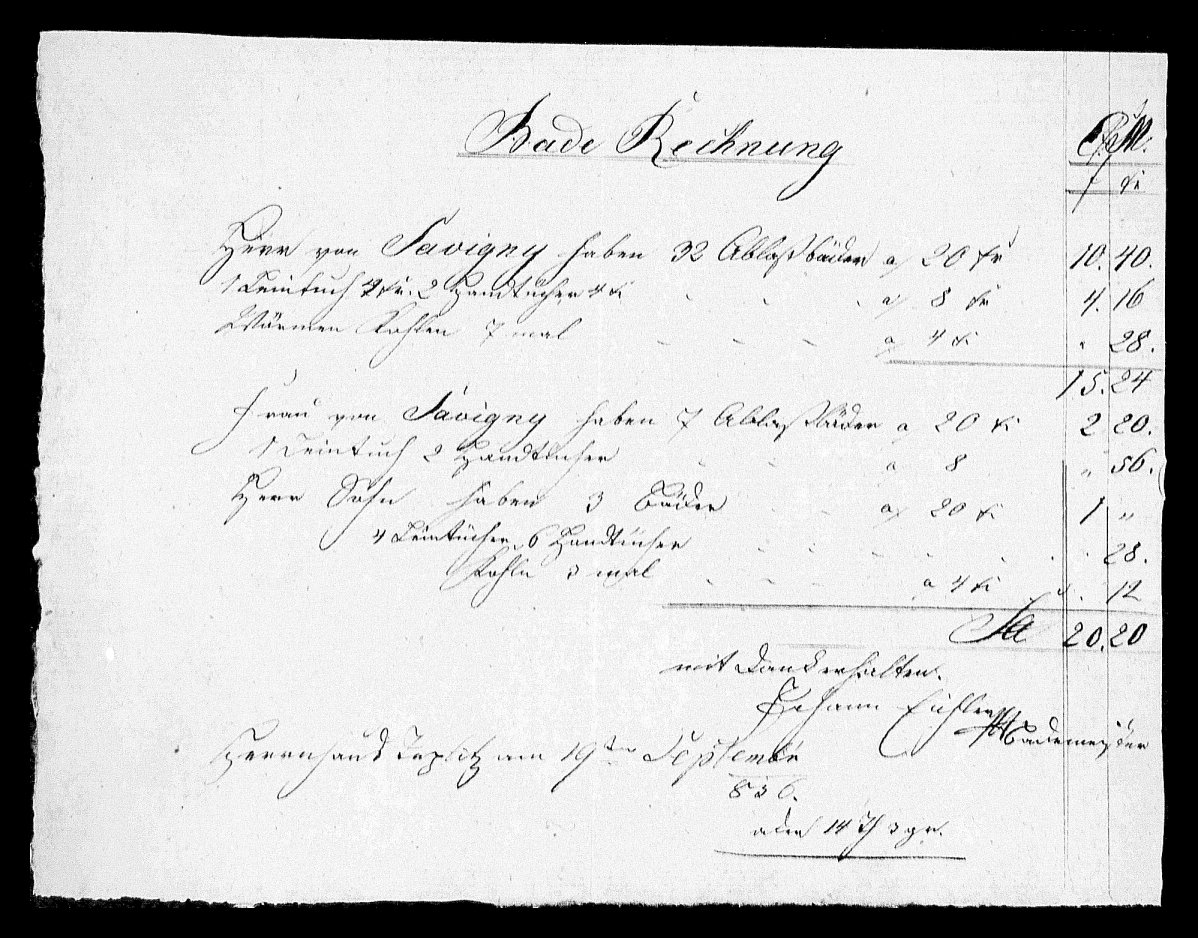 Bade Rechnung C.M.
f kr
Herr von Savigny haben 32 Ablaßbäder a 20 kr 10. 40.
1 Leintuch 4 kr. 2 Handtücher 4 kr a 8 kr 4. 16
Wärmen Kohlen 7 mal a 4 kr " 28.
15. 24
Frau von Savigny haben 7 Ablaßbäder a 20 kr 2 20.
1 Leintuch 2 Handtücher a 8 " 56.
Herr Sohn haben 3 Bäder a 20 kr 1 "
4 Leintücher, 6 Handtücher 28.
Kohln 3 mal a 4 kr 12
Sa 20. 20
mit Dank erhalten.
Johann Eichler
Bademeister
Herrnhaus Teplitz am 19ten September
836.
oder 14 Th 3 gr.